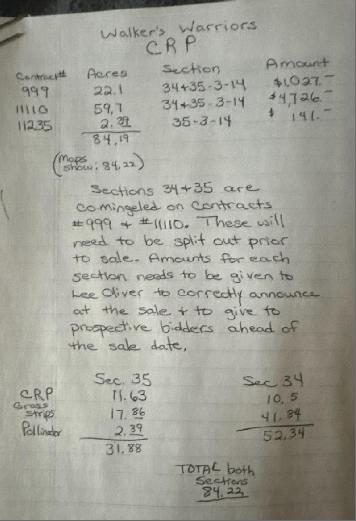 Walker's Warriors
CRP
Contract# Acres Section Amount
999 22.1 34+35-3-14 $1,027.-
11110 59.7 34+35-3-14 $4,726.-
11235 2.39 35-3-14 $ 141.-
84.19
(Maps show: 84.22)
Sections 34+35 are
comingeled on Contracts
#999 + #11110. These will
need to be split out prior
to sale. Amounts for each
section needs to be given to
Lee Oliver to correctly announce
at the sale + to give to
prospective bidders ahead of
the sale date.
Sec. 35 Sec 34
CRP 11.63 10.5
Grass Strips 17.86 41.84
Pollinator 2.39 52.34
31.88
TOTAL both
Sections
84.22